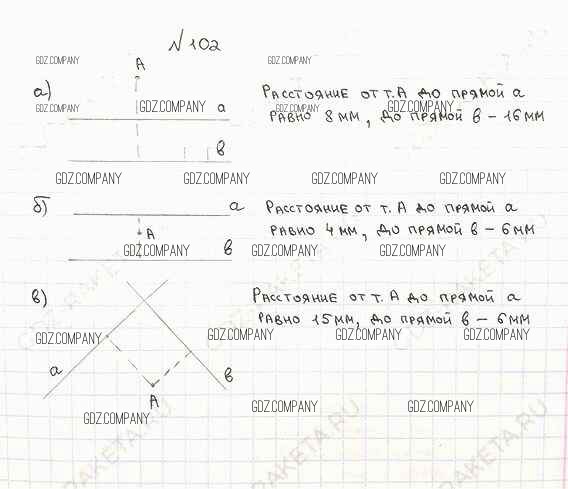 № 102
GDZ.COMPANY GDZ.COMPANY
A
а) Расстояние от т. А до прямой а
GDZ.COMPANY GDZ.COMPANY а GDZ.COMPANY GDZ.COMPANY
равно 8 мм, до прямой в – 16 мм
в
GDZ.COMPANY GDZ.COMPANY GDZ.COMPANY GDZ.COMPANY
б) а Расстояние от т. А до прямой а
А равно 4 мм, до прямой в – 6 мм
GDZ.COMPANY в GDZ.COMPANY GDZ.COMPANY
в) Расстояние от т. А до прямой а
равно 15 мм, до прямой в – 6 мм
GDZ.COMPANY GDZ.COMPANY GDZ.COMPANY GDZ.COMPANY
а в
А
GDZ.COMPANY GDZ.COMPANY GDZ.COMPANY